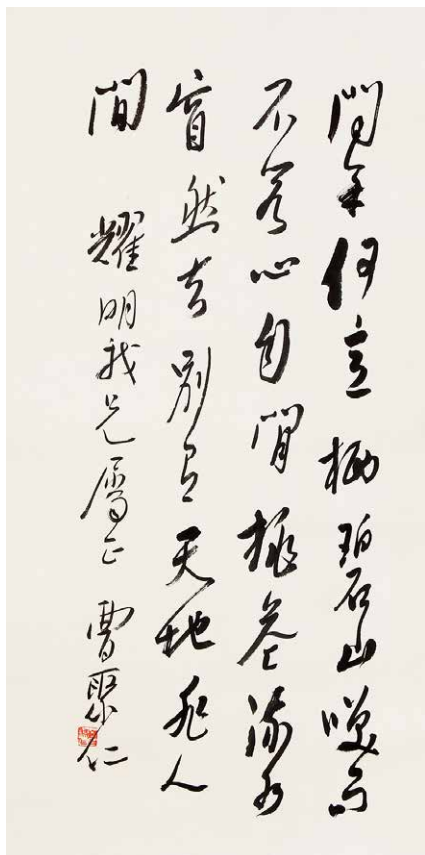 問余何意栖碧山笑而
不答心自閒桃花流水
窅然去別有天地非人
間 耀明我兄屬正 曹聚仁